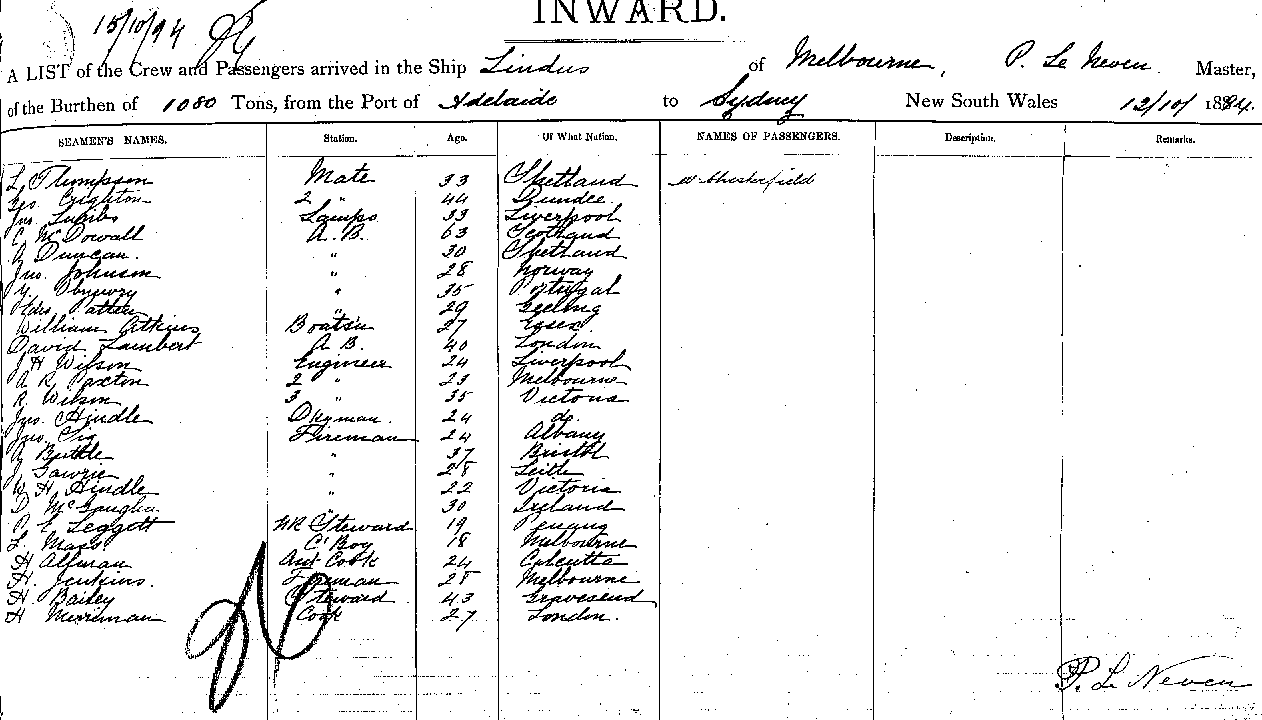 INWARD.
15/10/94
A LIST of the Crew and Passengers arrived in the Ship Lindus of Melbourne, P. Le Neven Master,
of the Burthen of 1080 Tons, from the Port of Adelaide to Sydney New South Wales 12/10/ 1884.
SEAMEN'S NAMES. Station. Age. Of What Nation. NAMES OF PASSENGERS. Description. Remarks.
L Thompson Mate 33 Shetland W Chesterfield
Geo. Crighton 2 " 44 Dundee
Jns. Lamps 33 Liverpool
C McDowall A.B. 63 Scotland
A Duncan. " 30 Shetland
Jno. Johnson " 28 Norway
" 35 Portugal
" 29 Geelong
William Atkins Boats'n 27 Essex
David Lambert A B. 40 London
J H Wilson Engineer 24 Liverpool
A R Paxton 2 " 23 Melbourne
R Wilson 3 " 35 Victoria
Jno. Hindle Dkyman 24 do.
Jno. Fireman 24 Albany
A Buttle " 37 Bristol
J Gowrie " 28 Leith
W H Hindle " 22 Victoria
D " 30 Ireland
E Leggett Steward 19 Penang
Mass C' Boy 18 Melbourne
H Alfman Cook 24 Calcutta
H. Jenkins. Fireman 28 Melbourne
H Bailey Steward 43 Gravesend
H Merriman Cook 27 London.
P. Le Neven